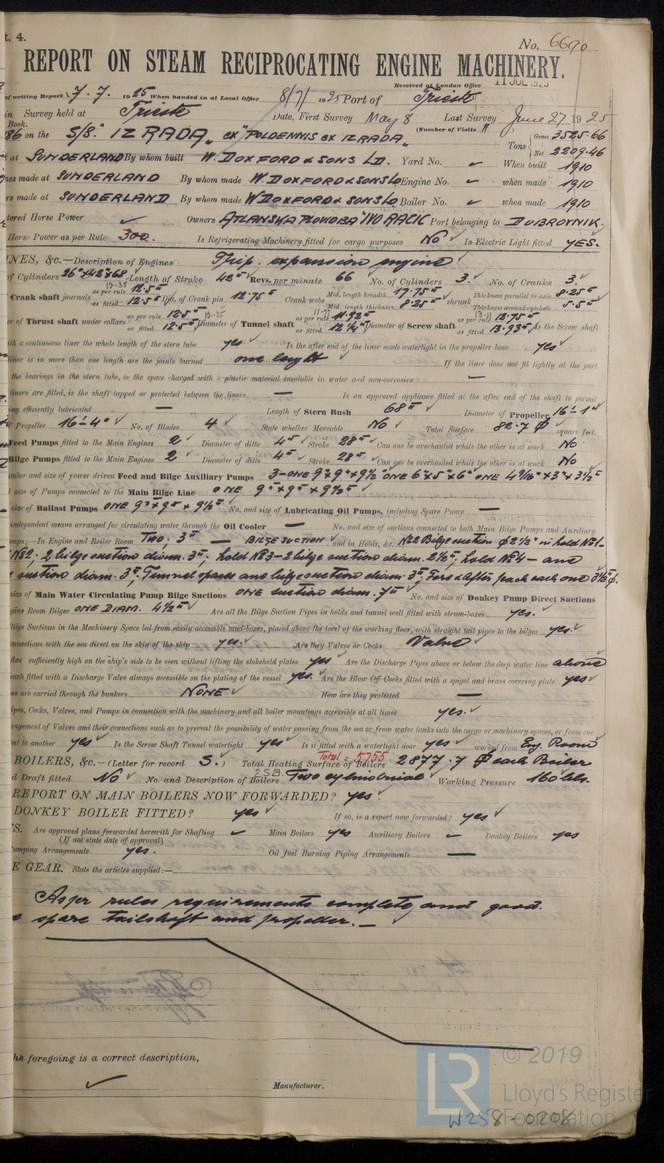 t. 4.
No. 6690
REPORT ON STEAM RECIPROCATING ENGINE MACHINERY.
Received at London Office 11 JUL 1925
of writing Report 7. 7. 1925 When handed in at Local Office 8/7/ 1925 Port of Trieste
in Survey held at Trieste Date, First Survey May 8 Last Survey June 27 1925
Book. (Number of Visits 11
86 on the S/S. "IZRADA" ex "POLDENNIS ex IZRADA" Tons Gross 3525.66
Net 2209.46
at SUNDERLAND By whom built W. DOXFORD & SONS LD. Yard No. When built 1910
nes made at SUNDERLAND By whom made W. DOXFORD & SONS LD Engine No. when made 1910
rs made at SUNDERLAND By whom made W DOXFORD & SONS LD Boiler No. when made 1910
tered Horse Power Owners ATLANSKA PLOVIDBA "IVO RACIC Port belonging to DUBROVNIK.
Horse Power as per Rule 300. Is Refrigerating Machinery fitted for cargo purposes No Is Electric Light fitted YES.
INES, &c.—Description of Engines Trip. expansion engine
of Cylinders 26" x 42" x 68" Length of Stroke 42" Revs. per minute 66 No. of Cylinders 3. No. of Cranks 3
Crank shaft journals as fitted 12.5" Dia. of Crank pin 12.75" Crank webs Mid. length breadth 17.75" Mid. length thickness 8.25" shrunk Thickness parallel to axis 8.25" Thickness around eyehole 5.5"
er of Thrust shaft under collars as per rule 12.5" as fitted 12.5" Diameter of Tunnel shaft as per rule 11.92" as fitted 12 1/4" Diameter of Screw shaft as per rule 13.75" as fitted 13.93" Is the Screw shaft
with a continuous liner the whole length of the stern tube yes Is the after end of the liner made watertight in the propeller boss yes
liner is in more than one length are the joints burned one lenght If the liner does not fit tightly at the part
the bearings in the stern tube, is the space charged with a plastic material insoluble in water and non-corrosive —
liners are fitted, is the shaft lapped or protected between the liners — Is an approved appliance fitted at the after end of the shaft to permit
ing efficiently lubricated — Length of Stern Bush 68" Diameter of Propeller 16'-1"
Propeller 16'-4" No. of Blades 4 State whether Moveable No Total Surface 82.7 square feet.
Feed Pumps fitted to the Main Engines 2 Diameter of ditto 4" Stroke 28" Can one be overhauled while the other is at work No
Bilge Pumps fitted to the Main Engines 2 Diameter of ditto 4" Stroke 28" Can one be overhauled while the other is at work No
mber and size of power driven Feed and Bilge Auxiliary Pumps 3-ONE 9" x 9" x 9 1/2" ONE 6" x 5" x 6" ONE 4 9/16" x 3" x 3 1/2"
size of Pumps connected to the Main Bilge Line ONE 9" x 9" x 9 1/2"
size of Ballast Pumps ONE 9" x 9" x 9 1/2" No. and size of Lubricating Oil Pumps, including Spare Pump —
independent means arranged for circulating water through the Oil Cooler — No. and size of suctions connected to both Main Bilge Pumps and Auxiliary
umps;—In Engine and Boiler Room TWO. 3" — BILGE SUCTION and in Holds, &c. No2 Bilge suction 2 1/2" in hold No1-
No2; 2 bilge suction diam. 3"; hold No3-2 bilge suction diam. 2 1/2", hold No4- one
suction diam. 3", Tunnel space one bilge suction diam. 3", Fore & After peak each one 3 1/2
size of Main Water Circulating Pump Bilge Suctions ONE suction diam. 7" No. and size of Donkey Pump Direct Suctions
gine Room Bilges ONE DIAM. 4 1/2" Are all the Bilge Suction Pipes in holds and tunnel well fitted with strum-boxes yes.
Bilge Suctions in the Machinery Space led from easily accessible mud-boxes, placed above the level of the working floor, with straight tail pipes to the bilges yes.
onnections with the sea direct on the skin of the ship yes. Are they Valves or Cocks Valve
fixed sufficiently high on the ship's side to be seen without lifting the stokehold plates yes Are the Discharge Pipes above or below the deep water line above
each fitted with a Discharge Valve always accessible on the plating of the vessel yes. Are the Blow Off Cocks fitted with a spigot and brass covering plate yes
es are carried through the bunkers NONE How are they protected —
ipes, Cocks, Valves, and Pumps in connection with the machinery and all boiler mountings accessible at all times yes.
ngement of Valves and their connections such as to prevent the possibility of water passing from the sea or from water tanks into the cargo or machinery spaces, or from one
nt to another yes Is the Screw Shaft Tunnel watertight yes Is it fitted with a watertight door yes worked from Eng. Room
BOILERS, &c.—(Letter for record S.) Total Heating Surface of Boilers Total = 5755 2877.7 each Boiler
d Draft fitted No No. and Description of Boilers 2SB. Two cylindrical Working Pressure 160 lbs.
REPORT ON MAIN BOILERS NOW FORWARDED? yes
DONKEY BOILER FITTED? yes If so, is a report now forwarded? yes
S. Are approved plans forwarded herewith for Shafting Main Boilers yes Auxiliary Boilers Donkey Boilers yes
(If not state date of approval)
umping Arrangements yes. Oil fuel Burning Piping Arrangements —
E GEAR. State the articles supplied:—
As per rules requirements complete, and good.
spare tailshaft and propeller. —
he foregoing is a correct description,
Manufacturer.
LR
© 2019
Lloyd's Register
Foundation
W258-0208